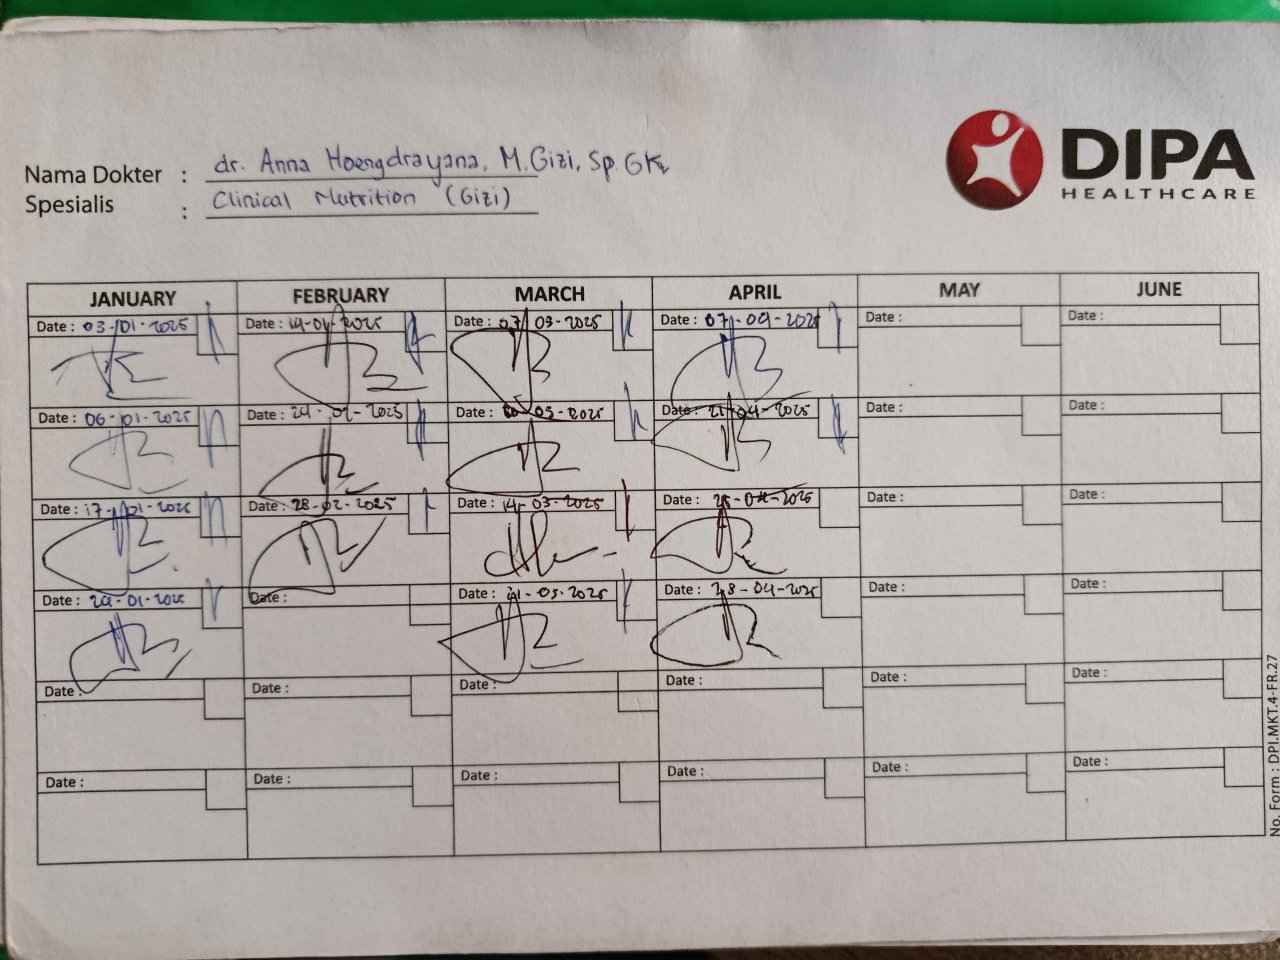 DIPA
HEALTHCARE
Nama Dokter : dr. Anna Hoengdrayana, M.Gizi, Sp.GK
Spesialis : Clinical Nutrition (Gizi)
JANUARY FEBRUARY MARCH APRIL MAY JUNE
Date : 03-01-2025 Date : 14-02-2025 Date : 07-03-2025 Date : 07-04-2025 Date : Date :
Date : 06-01-2025 Date : 24-02-2025 Date : 03-2025 Date : 21-04-2025 Date : Date :
Date : 17-01-2025 Date : 28-02-2025 Date : 14-03-2025 Date : 25-04-2025 Date : Date :
Date : 01-2025 Date : Date : 03-2025 Date : 28-04-2025 Date : Date :
Date : Date : Date : Date : Date : Date :
Date : Date : Date : Date : Date : Date :
No. Form : DPI.MKT.4-FR.27